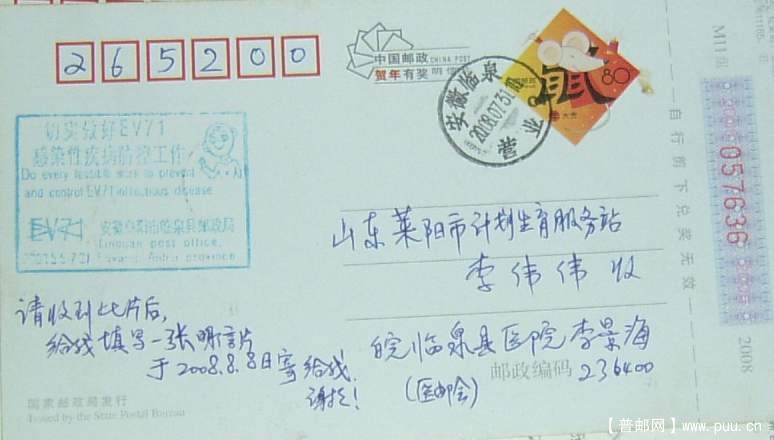 265200
中国邮政 CHINA POST
贺年有奖 明信片
80
安徽临泉
2008.07.31.
营业
切实做好EV71
感染性疾病防控工作
Do every feasible work to prevent
and control EV71 infectious disease
EV71
安徽 临泉县邮政局
post office,
Anhui province
山东莱阳市计划生育服务站
李伟伟 收
请收到此片后,
给我填写一张明信片
于2008.8.8日寄给我.
谢谢!
皖临泉县医院李景海
(医邮会)
邮政编码 236400
国家邮政局发行
Issued by the State Postal Bureau
自行剪下兑奖无效
057636
2008
【普邮网】www.puu.cn